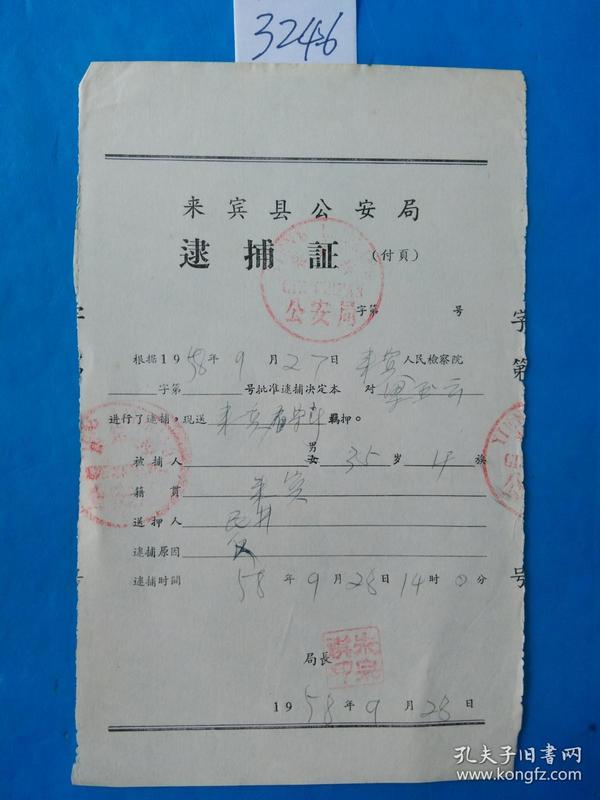 3246
来宾县公安局
逮捕証(付頁)
公安局
字第 号
根据1958年9月27日来宾人民檢察院
字第 号批准逮捕决定本 对
进行了逮捕,现送来宾看守所羁押。
被捕人 男女 35岁 族
籍贯 来宾
送押人 民井
逮捕原因
逮捕时間 58年9月28日14时0分
局長
1958年9月28日
字第
号
孔夫子旧书网
www.kongfz.com